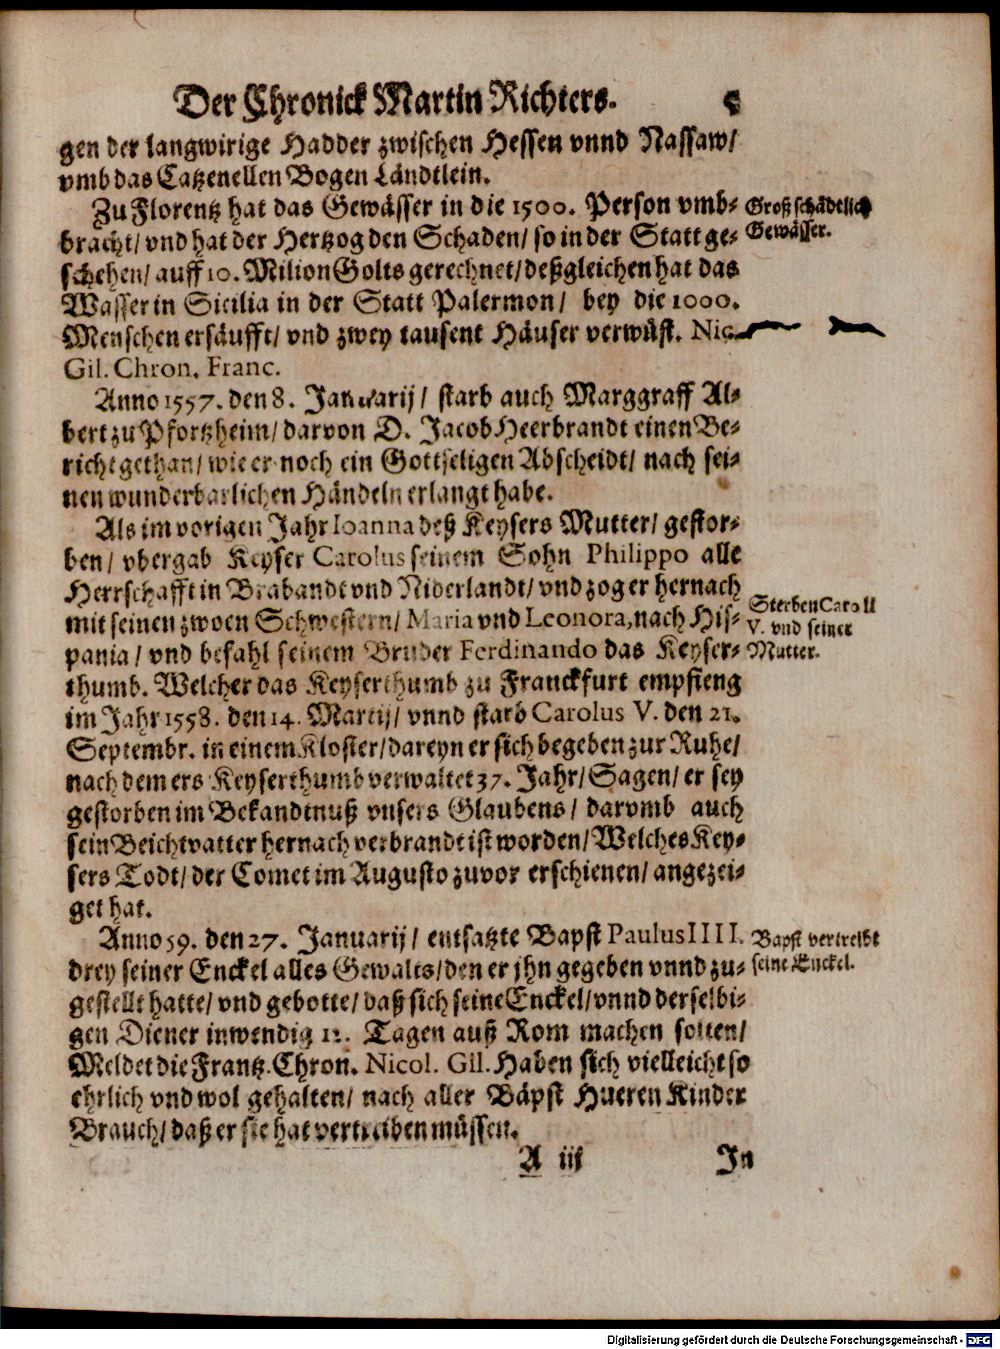 Der Chronick Martin Richters. 5
gen der langwirige Hadder zwischen Hessen vnnd Nassaw/
vmb das Catzenellen Bogen Ländtlein.
Zu Florentz hat das Gewässer in die 1500. Person vmb-
bracht/ vnd hat der Hertzog den Schaden/ so in der Statt ge-
schehen/ auff 10. Milion Golts gerechnet/ deßgleichen hat das
Wasser in Sicilia in der Statt Palermon/ bey die 1000.
Menschen ersäufft/ vnd zwey tausent Häuser verwüst. Nic.
Gil. Chron. Franc.
Großschädtlich
Gewässer.
Anno 1557. den 8. Januarij/ starb auch Marggraff Al-
bert zu Pfortzheim/ darvon D. Jacob Heerbrandt einen Be-
richt gethan/ wie er noch ein Gottseligen Abscheidt/ nach sei-
nen wunderbarlichen Händeln erlangt habe.
Als im vorigen Jahr Ioanna deß Keysers Mutter/ gestor-
ben/ vbergab Keyser Carolus seinem Sohn Philippo alle
Herrschafft in Brabandt vnd Niderlandt/ vnd zog er hernach
mit seinen zwoen Schwestern/ Maria vnd Leonora, nach His-
pania/ vnd befahl seinem Bruder Ferdinando das Keyser-
thumb. Welcher das Keyserthumb zu Franckfurt empfieng
im Jahr 1558. den 14. Martij/ vnnd starb Carolus V. den 21.
Septembr. in einem Kloster/ dareyn er sich begeben zur Ruhe/
nach dem ers Keyserthumb verwaltet 37. Jahr/ Sagen/ er sey
gestorben im Bekandtnuß vnsers Glaubens/ darvmb auch
sein Beichtvatter hernach verbrandt ist worden/ Welches Key-
sers Todt/ der Comet im Augusto zuvor erschienen/ angezei-
get hat.
Sterben Caroli
V. vnd seiner
Mutter.
Anno 59. den 27. Januarij/ entsatzte Bapst Paulus IIII.
drey seiner Enckel alles Gewalts/ den er jhn gegeben vnnd zu-
gestellt hatte/ vnd gebotte/ daß sich seine Enckel/ vnnd derselbi-
gen Diener inwendig 12. Tagen auß Rom machen solten/
Meldet die Frantz. Chron. Nicol. Gil. Haben sich vielleicht so
ehrlich vnd wol gehalten/ nach aller Bäpst Hueren Kinder
Brauch/ daß er sie hat vertreiben müssen.
Bapst vertreibt
seine Enckel.
A iij In
Digitalisierung gefördert durch die Deutsche Forschungsgemeinschaft - DFG